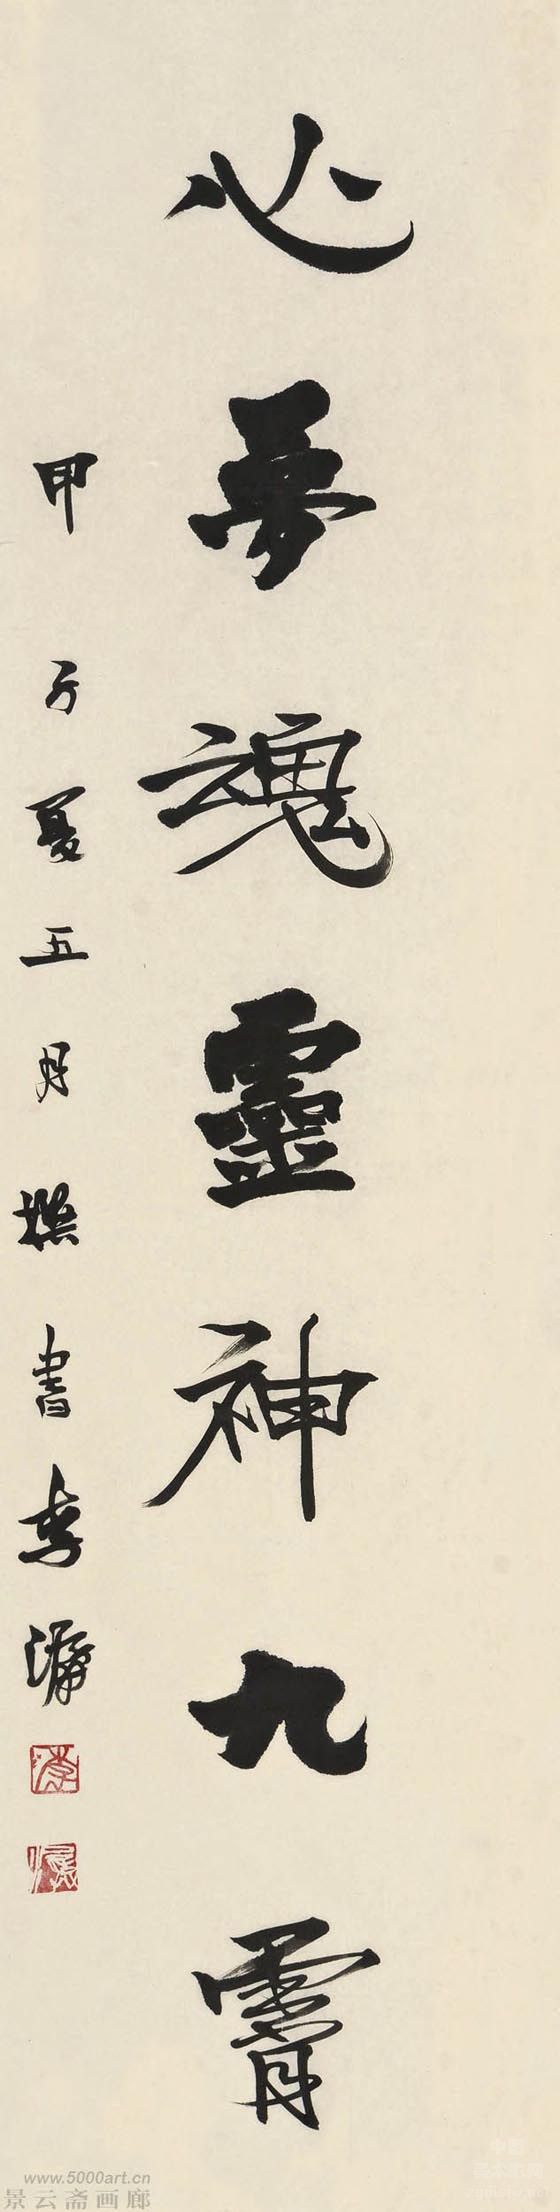 心夢魂靈神九霄
甲子夏五月撫書李
www.5000art.cn
景云斋画廊